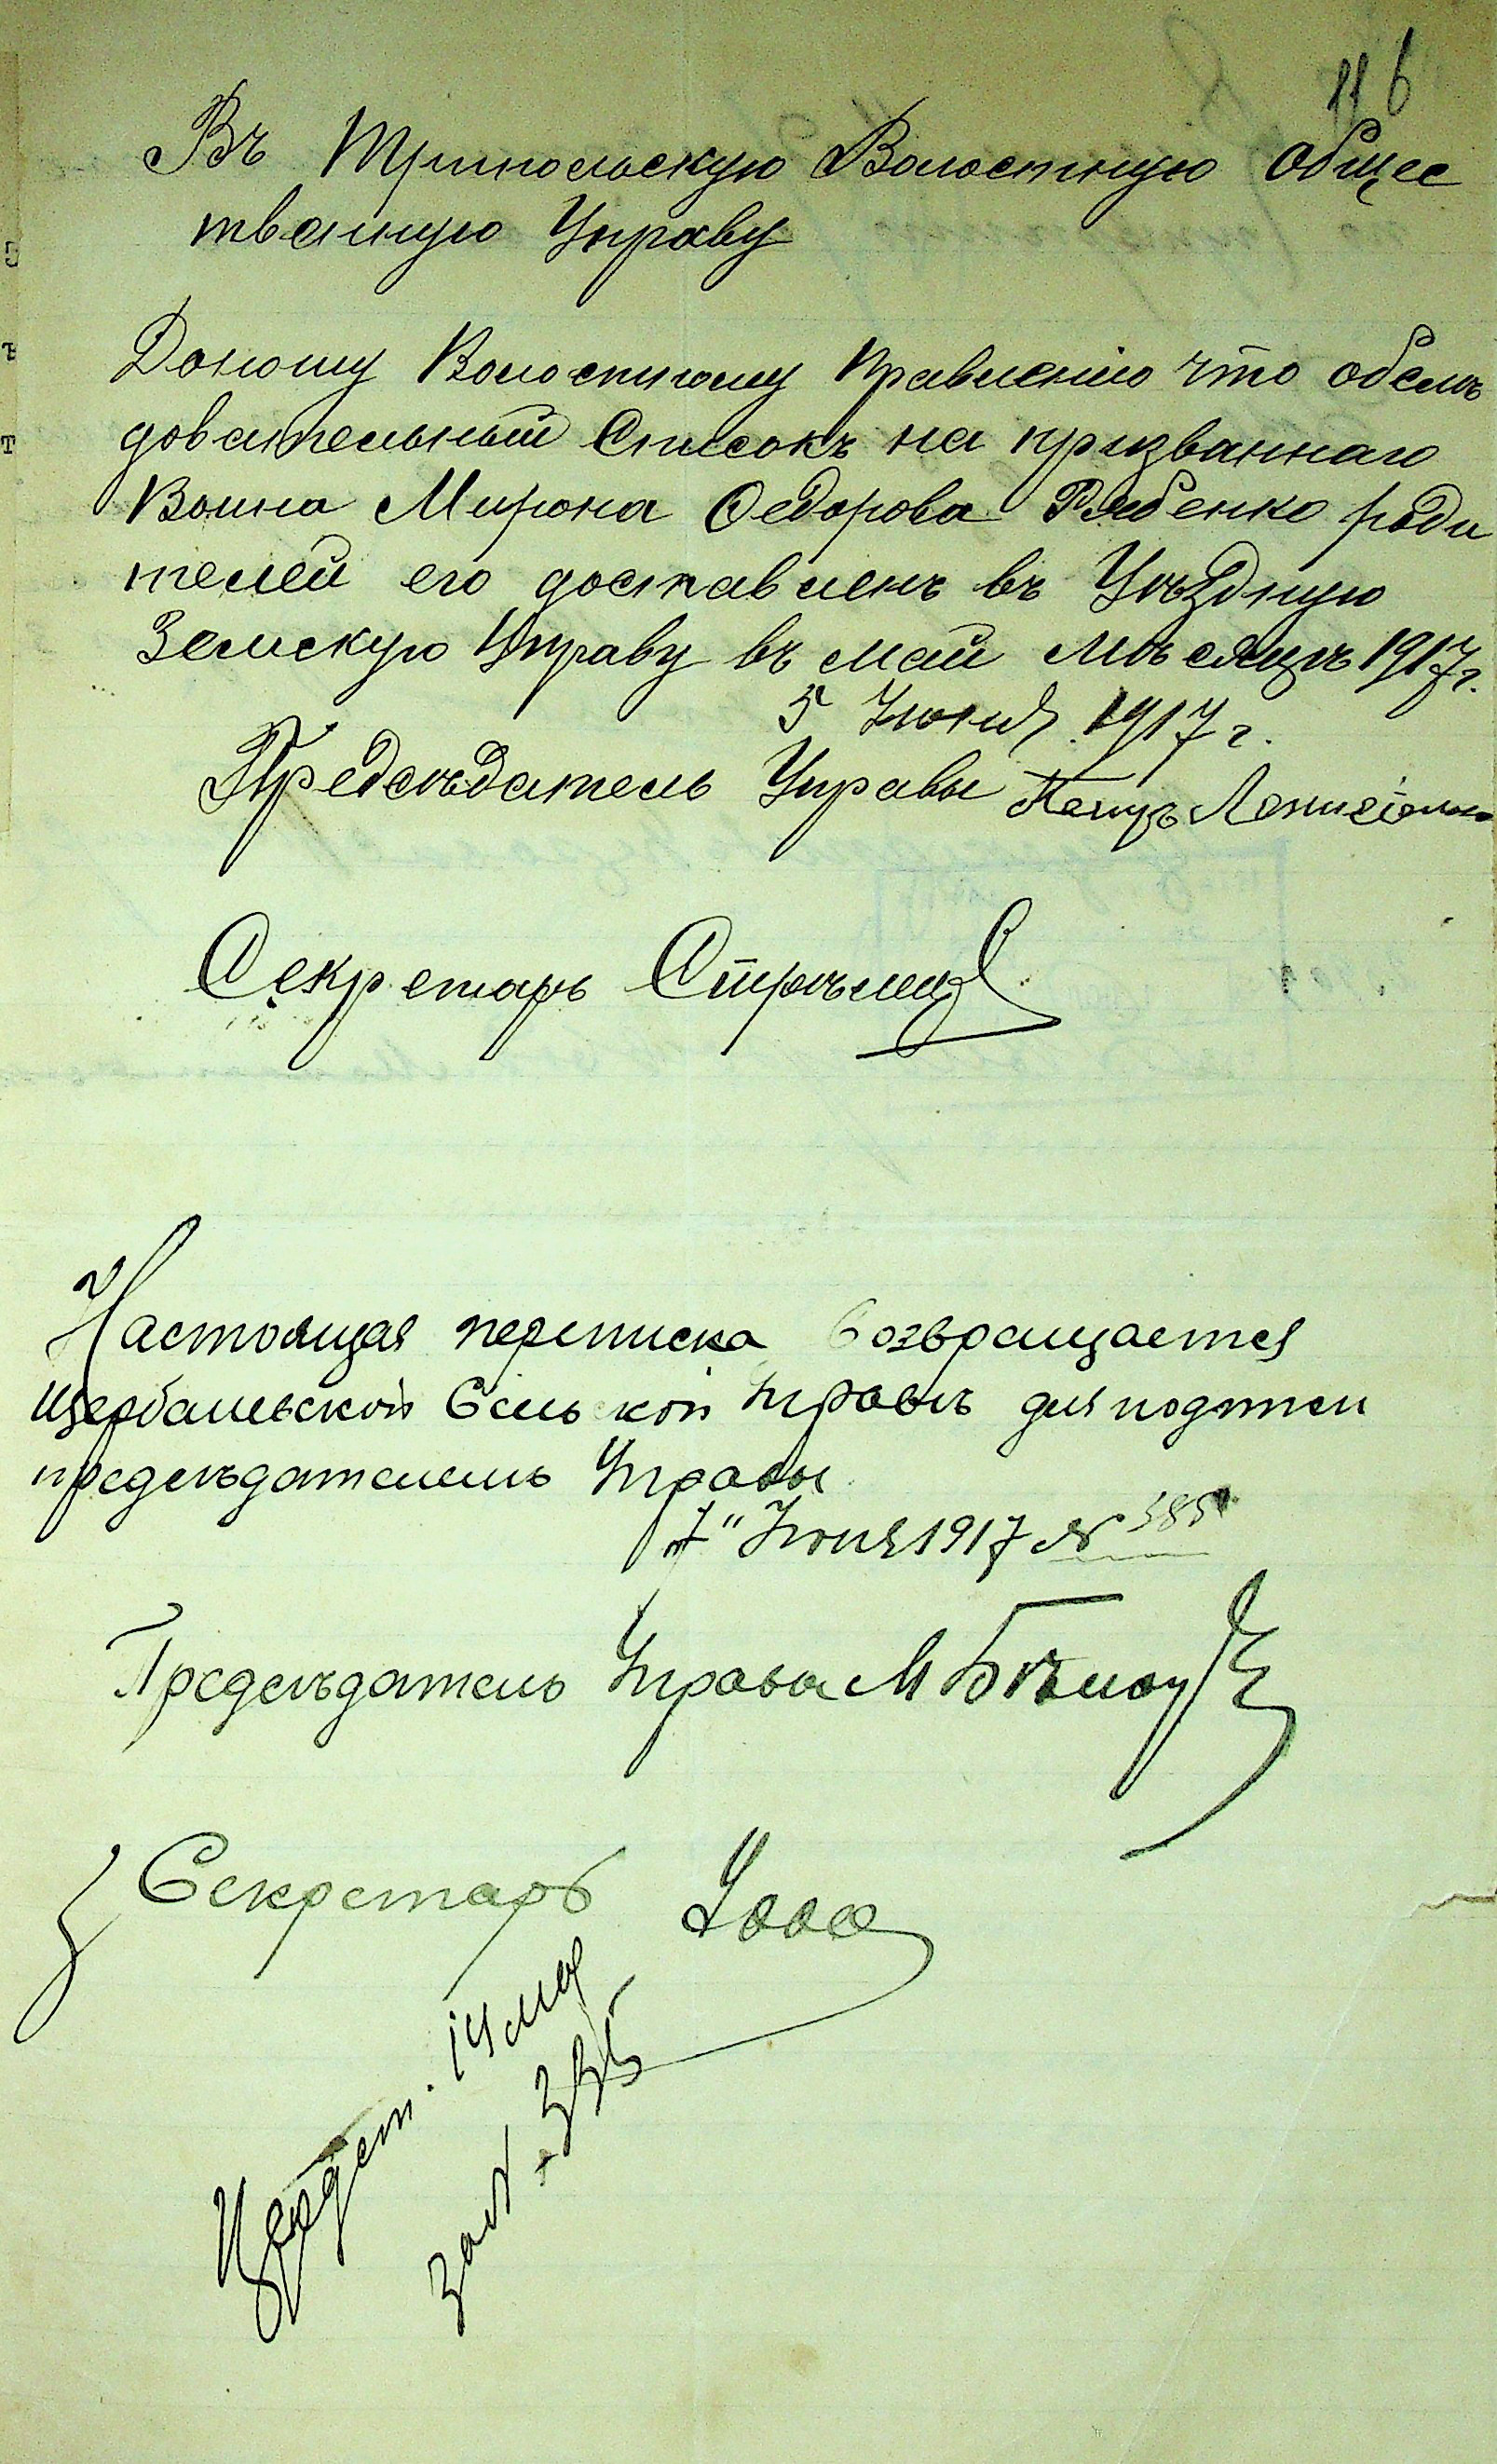 116
Въ Трипольскую Волостную общес
твенную Управу
Доношу Волостному Правленію что обслѣ
довательный Списокъ на призваннаго
Воина Мирона Федорова Рябенко роди
телей его доставленъ въ Уѣздную
Земскую Управу въ май мѣсяцѣ 1917 г.
5 Іюня 1917 г.
Предсѣдатель Управы
Секретарь Стрѣлец
Настоящая переписка возвращается
Щербаневской Сельской Управѣ для подписи
предсѣдателемъ Управы
"7" Іюня 1917 №
Предсѣдатель Управы М
Секретарь